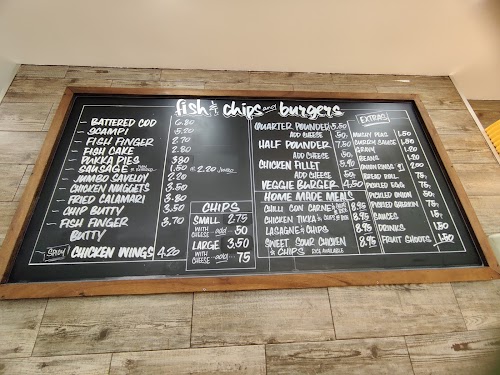 fish & chips and burgers
BATTERED COD 6.80
SCAMPI 5.20
FISH FINGER 2.70
FISH CAKE 2.80
PUKKA PIES 3.80
SAUSAGE PLAIN 1.50 @ 2.20 JUMBO
JUMBO SAVELOY 2.20
CHICKEN NUGGETS 3.50
FRIED CALAMARI 3.80
CHIP BUTTY 3.50
FISH FINGER 3.70
BUTTY
SPICY CHICKEN WINGS 4.20
CHIPS
SMALL 2.75
WITH CHEESE add 50
LARGE 3.50
WITH CHEESE add 75
QUARTER POUNDER 5.50
ADD CHEESE 50
HALF POUNDER 7.50
ADD CHEESE 50
CHICKEN FILLET 5.40
ADD CHEESE 50
VEGGIE BURGER 4.50
HOME MADE MEALS
CHILLI CON CARNE & CHIPS 8.95
CHICKEN TIKKA & CHIPS 8.95
LASAGNE & CHIPS 8.95
SWEET SOUR CHICKEN 8.95
& CHIPS RICE AVAILABLE
EXTRAS
MUSHY PEAS 1.50
CURRY SAUCE 1.50
GRAVY 1.20
BEANS 1.20
ONION RINGS
BREAD ROLL
PICKLED EGG 75
PICKLED ONION
PICKLED GHERKIN
SAUCES
DRINKS 1.50
FRUIT SHOOTS 1.50